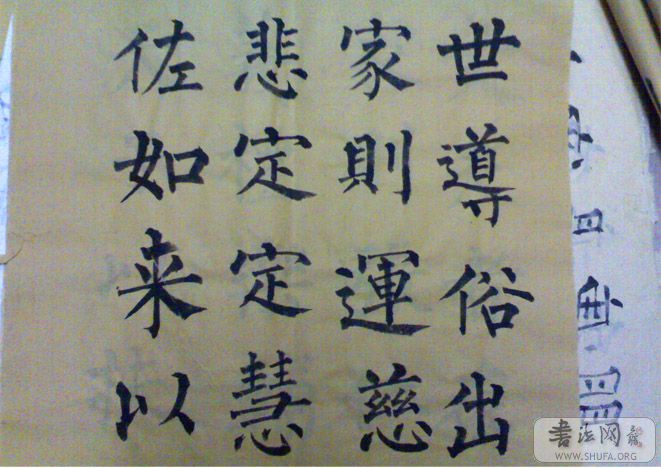 世導俗出
家則運慈
悲定定慧
佐如来以
書法网
WWW.SHUFA.ORG